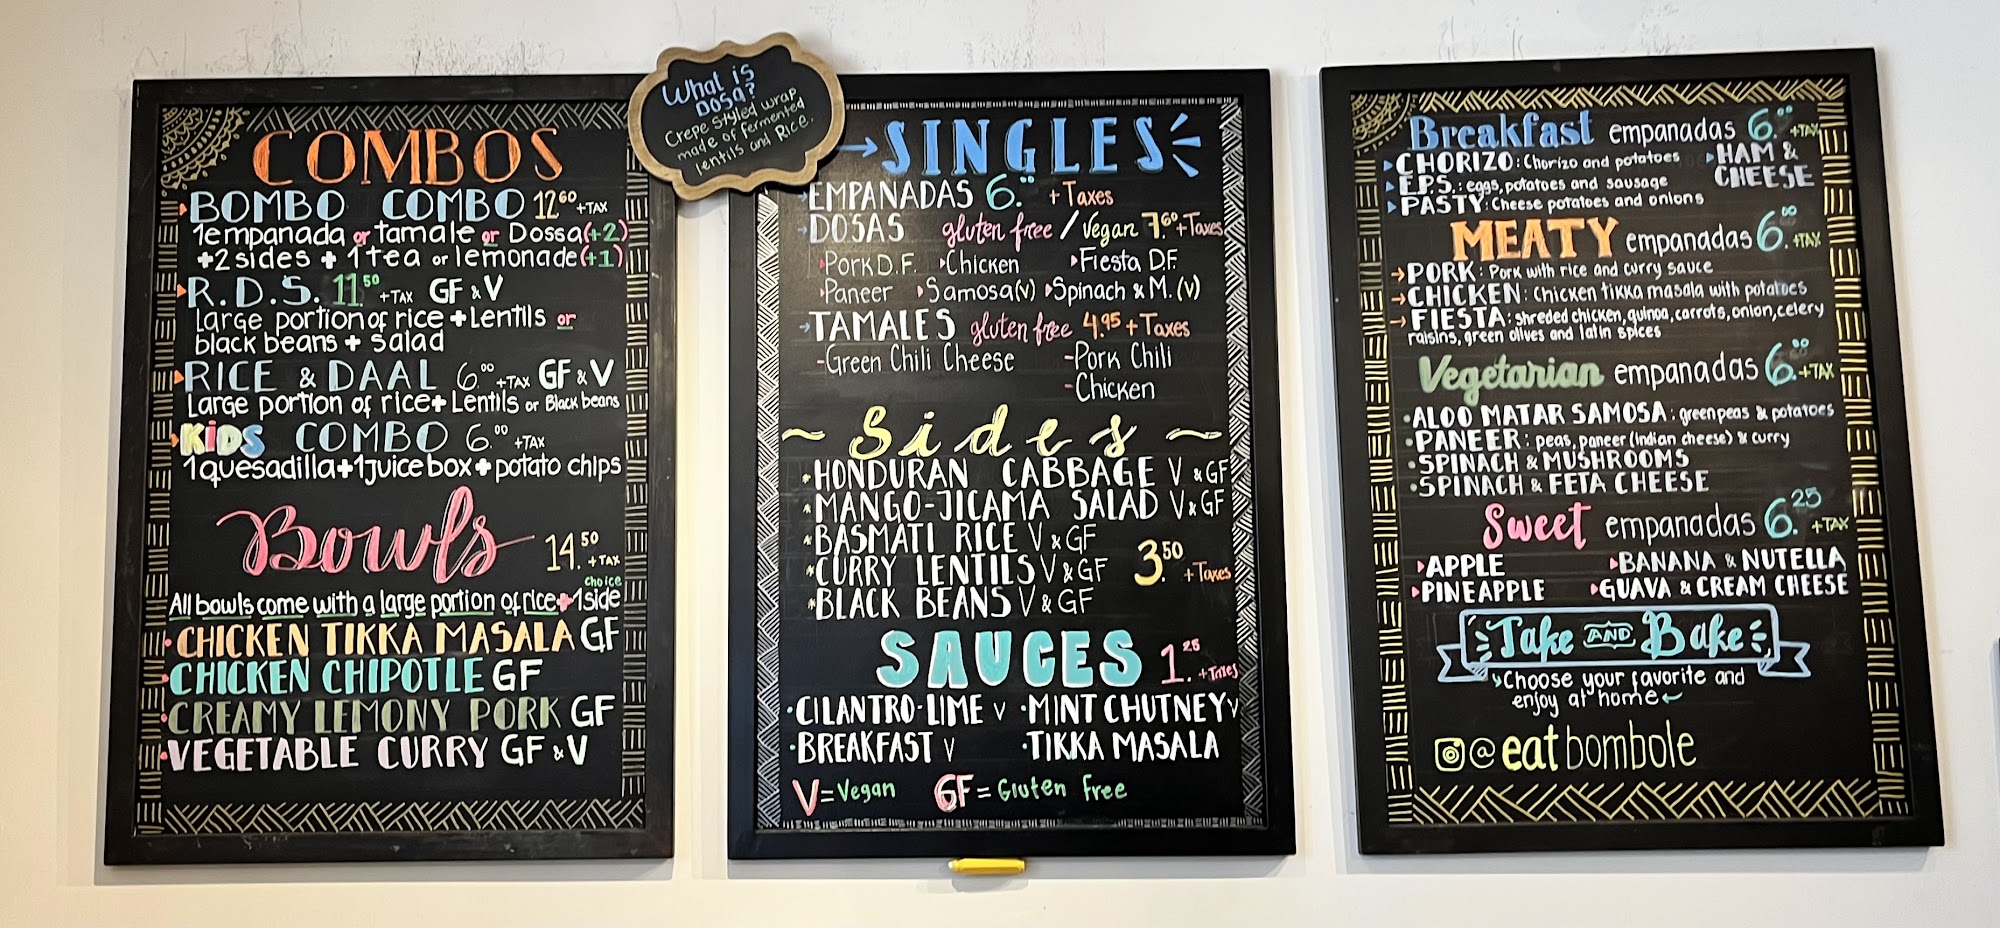 COMBOS
BOMBO COMBO 12.60 +TAX
1 empanada or tamale or Dossa (+2)
+2 sides + 1 tea or lemonade (+1)
R.D.S. 11.50 +TAX GF & V
Large portion of rice + Lentils or
black beans + salad
RICE & DAAL 6.00 +TAX GF & V
Large portion of rice + Lentils or Black beans
KiDS COMBO 6.00 +TAX
1 quesadilla + 1 juice box + potato chips
Bowls 14.50 +TAX
choice
All bowls come with a large portion of rice + 1 side
CHICKEN TIKKA MASALA GF
CHICKEN CHIPOTLE GF
CREAMY LEMONY PORK GF
VEGETABLE CURRY GF & V
What is
DOSA?
Crepe styled wrap
made of fermented
lentils and Rice.
SINGLES
EMPANADAS 6.00 + Taxes
DOSAS gluten free / Vegan 7.60 + Taxes
Pork D.F. Chicken Fiesta D.F.
Paneer Samosa (v) Spinach & M. (v)
TAMALES gluten free 4.95 + Taxes
-Green Chili Cheese -Pork Chili
-Chicken
~ Sides ~
HONDURAN CABBAGE V & GF
MANGO-JICAMA SALAD V & GF
BASMATI RICE V & GF
CURRY LENTILS V & GF 3.50 + Taxes
BLACK BEANS V & GF
SAUCES 1.25 + Taxes
CILANTRO-LIME V MINT CHUTNEY V
BREAKFAST V TIKKA MASALA
V = Vegan GF = Gluten Free
Breakfast empanadas 6.00 +TAX
CHORIZO: Chorizo and potatoes HAM &
E.P.S.: eggs, potatoes and sausage CHEESE
PASTY: Cheese potatoes and onions
MEATY empanadas 6.00 +TAX
PORK: Pork with rice and curry sauce
CHICKEN: Chicken tikka masala with potatoes
FIESTA: shreded chicken, quinoa, carrots, onion, celery
raisins, green olives and latin spices
Vegetarian empanadas 6.00 +TAX
ALOO MATAR SAMOSA: green peas & potatoes
PANEER: peas, paneer (Indian cheese) & curry
SPINACH & MUSHROOMS
SPINACH & FETA CHEESE
Sweet empanadas 6.25 +TAX
APPLE BANANA & NUTELLA
PINEAPPLE GUAVA & CREAM CHEESE
Take AND Bake
Choose your favorite and
enjoy at home
@eatbombole